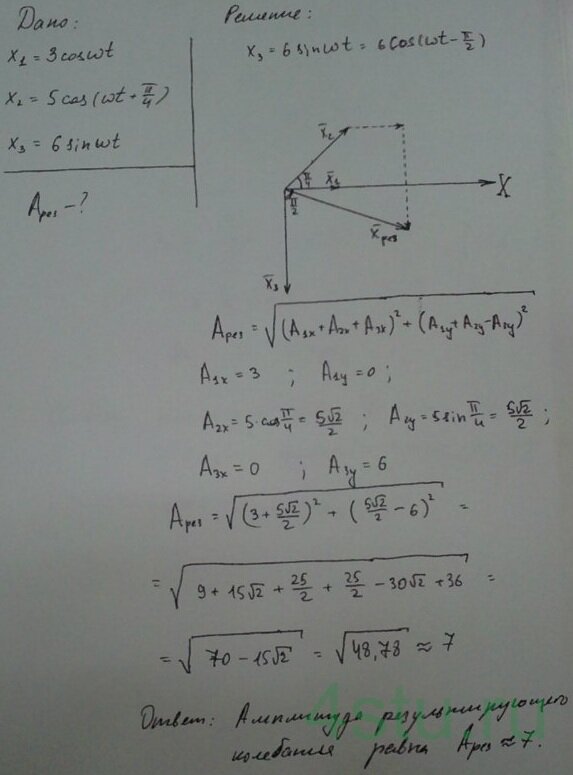 Дано:
x₁ = 3cosωt
x₂ = 5cos(ωt + π/4)
x₃ = 6sinωt
Aрез – ?
Решение:
x₃ = 6sinωt = 6cos(ωt – π/2)
x̄₂
π/4
x̄₁
X
π/2
x̄рез
x̄₃
Aрез = √((A₁ₓ + A₂ₓ + A₃ₓ)² + (A₁y + A₂y – A₃y)²)
A₁ₓ = 3 ; A₁y = 0 ;
A₂ₓ = 5·cos π/4 = 5√2/2 ; A₂y = 5sin π/4 = 5√2/2 ;
A₃ₓ = 0 ; A₃y = 6
Aрез = √((3 + 5√2/2)² + (5√2/2 – 6)²) =
= √(9 + 15√2 + 25/2 + 25/2 – 30√2 + 36) =
= √(70 – 15√2) = √48,78 ≈ 7
Ответ: Амплитуда результирующего
колебания равна Aрез ≈ 7.
4stu.ru